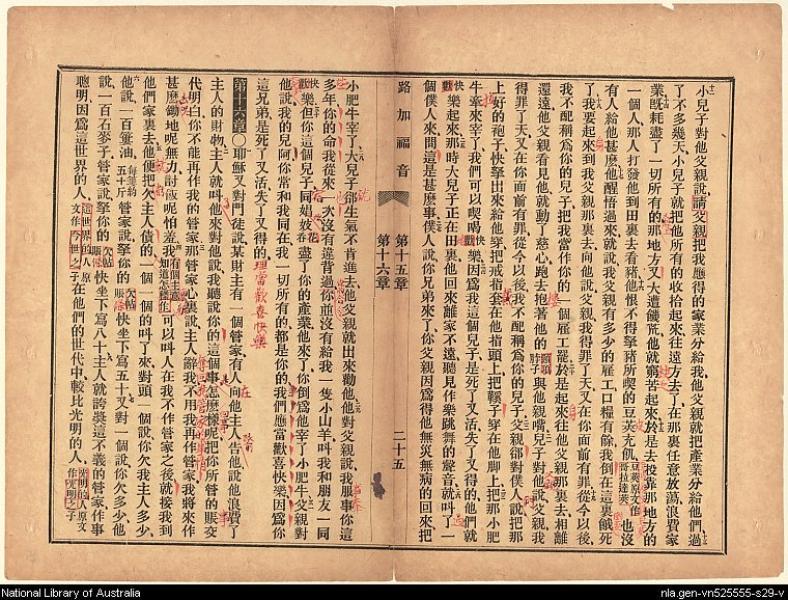 小兒子對他父親說請父親把我應得的家業分給我他父親就把產業分給他們過
了不多幾天小兒子就把他所有的收拾起來往遠方去了在那裏任意放蕩浪費家
業旣耗盡了一切所有的那地方又大遭饑荒他就窮苦起來於是去投靠那地方的
一個人那人打發他到田裏去看豬他恨不得拏豬所喫的豆莢充飢也沒
有人給他甚麽他醒悟過來就說我父親有多少的雇工口糧有餘我倒在這裏餓死
了我要起來到我父親那裏去向他說父親我得罪了天又在你面前有罪從今以後
我不配稱爲你的兒子把我當作你的一個雇工罷於是起來往他父親那裏去相離
還遠他父親看見他就動了慈心跑去抱著他的頸項與他親嘴兒子對他說父親我
得罪了天又在你面前有罪從今以後我不配稱爲你的兒子父親卻對僕人說把那
上好的袍子快拏出來給他穿把戒指套在他指頭上把鞵子穿在他脚上把那小肥
牛牽來宰了我們可以喫喝快樂因爲我這個兒子是死了又活失了又得的他們就
快樂起來那時大兒子正在田裏他回來離家不遠聽見作樂跳舞的聲音就叫了一
個僕人來問這是甚麽事僕人說你兄弟來了你父親因爲得他無災無病的回來把
路加福音
第十五章
第十六章
二十五
小肥牛宰了大兒子卻生氣不肯進去他父親就出來勸他他對父親說我服事你這
多年你的命我從來一次沒有違背過你並沒有給我一隻小山羊叫我和朋友一同
快樂但你這個兒子同娼妓吞盡了你的產業他來了你倒爲他宰了小肥牛父親對
他說我的兒阿你常和我同在我一切所有的都是你的我們應當歡喜快樂因爲你
這兄弟是死了又活失了又得的
理當歡喜快樂
第十六章〇耶穌又對門徒說某財主有一個管家有人向他主人告他說他浪費了
主人的財物主人就叫他來對他說我聽說你的這個事怎麽樣呢把你所管的賬交
代明白你不能再作我的管家那管家心裏說主人辭我不用我再作管家我將來作
甚麽鋤地呢無力討飯呢怕羞我可以叫人在我不作管家之後就接我到
他們家裏去他便把欠主人債的一個一個的叫了來對頭一個說你欠我主人多少
他說一百簍油管家說拏你的賬快坐下寫五十又對一個說你欠多少他
說一百石麥子管家說拏你的賬快坐下寫八十主人就誇奬這不義的管家作事
聰明因爲這世界的人在他們的世代中較比光明的人
National Library of Australia
nla.gen-vn525555-s29-v